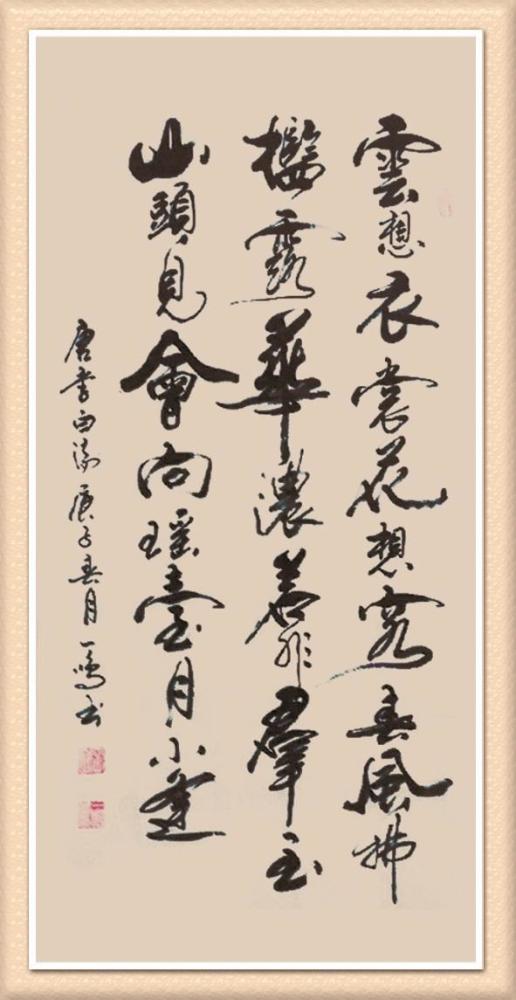 雲想衣裳花想容春風拂
檻露華濃若非羣玉
山頭見會向瑤臺月下逢
唐李白詩庚子春月一鳴書